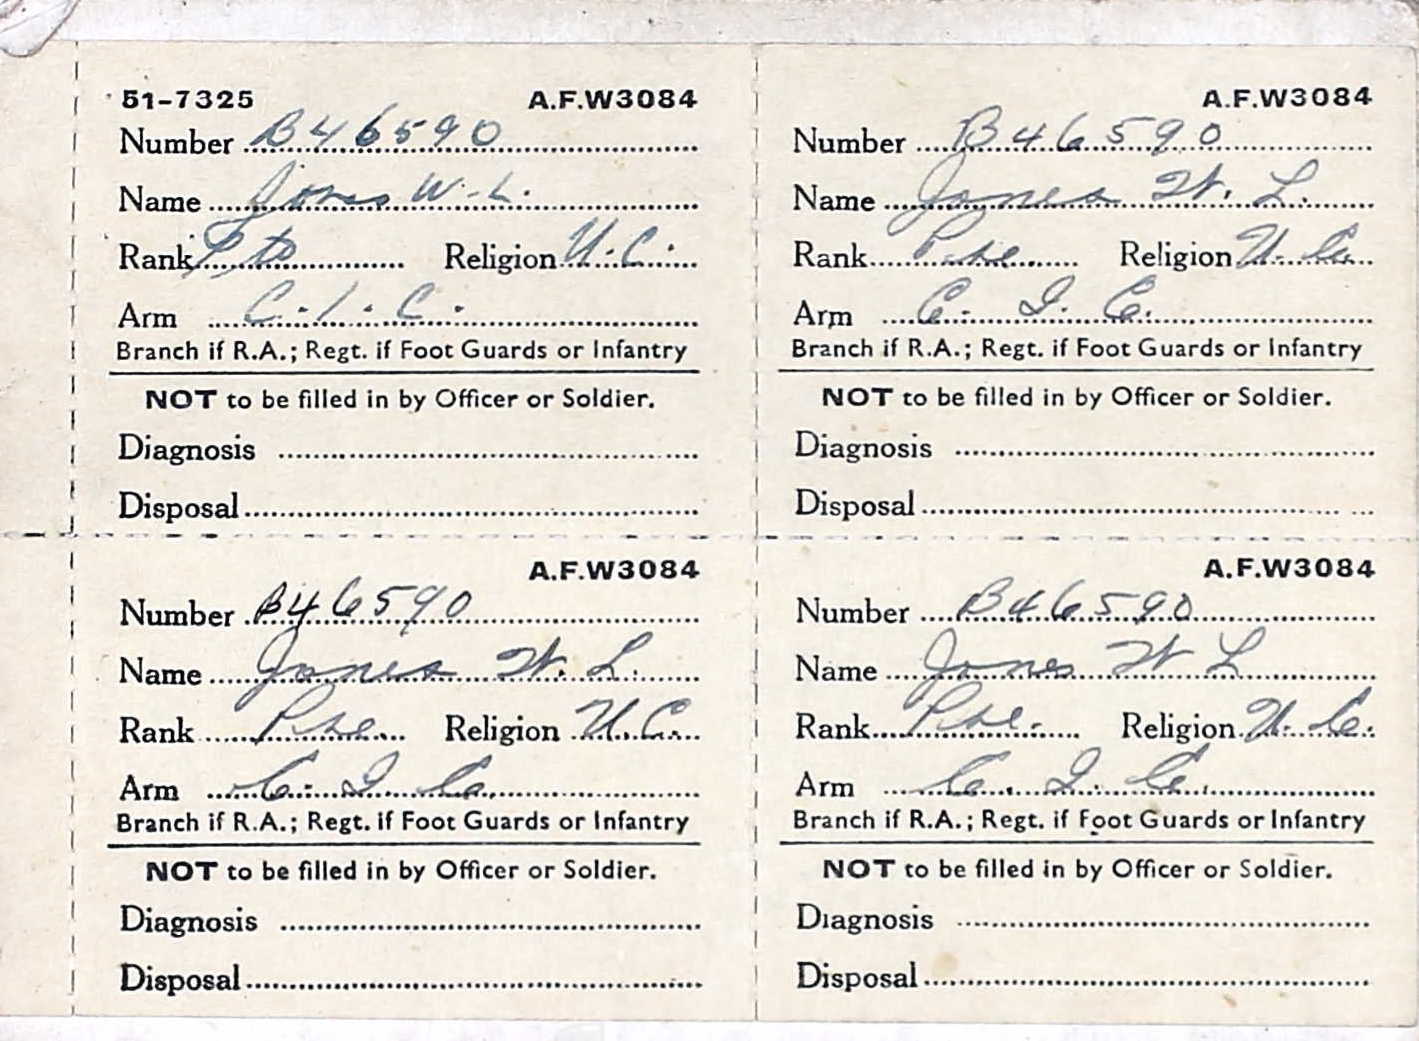 51-7325 A.F.W3084
Number B46590
Name Jones W.L.
Rank Pte Religion U.C.
Arm C.I.C.
Branch if R.A.; Regt. if Foot Guards or Infantry
NOT to be filled in by Officer or Soldier.
Diagnosis
Disposal
A.F.W3084
Number B46590
Name Jones W. L.
Rank Pte. Religion U.C.
Arm C. I. C.
Branch if R.A.; Regt. if Foot Guards or Infantry
NOT to be filled in by Officer or Soldier.
Diagnosis
Disposal
A.F.W3084
Number B46590
Name Jones W. L.
Rank Pte. Religion U.C.
Arm C. I. C.
Branch if R.A.; Regt. if Foot Guards or Infantry
NOT to be filled in by Officer or Soldier.
Diagnosis
Disposal
A.F.W3084
Number B46590
Name Jones W L
Rank Pte. Religion U.C.
Arm C. I. C.
Branch if R.A.; Regt. if Foot Guards or Infantry
NOT to be filled in by Officer or Soldier.
Diagnosis
Disposal